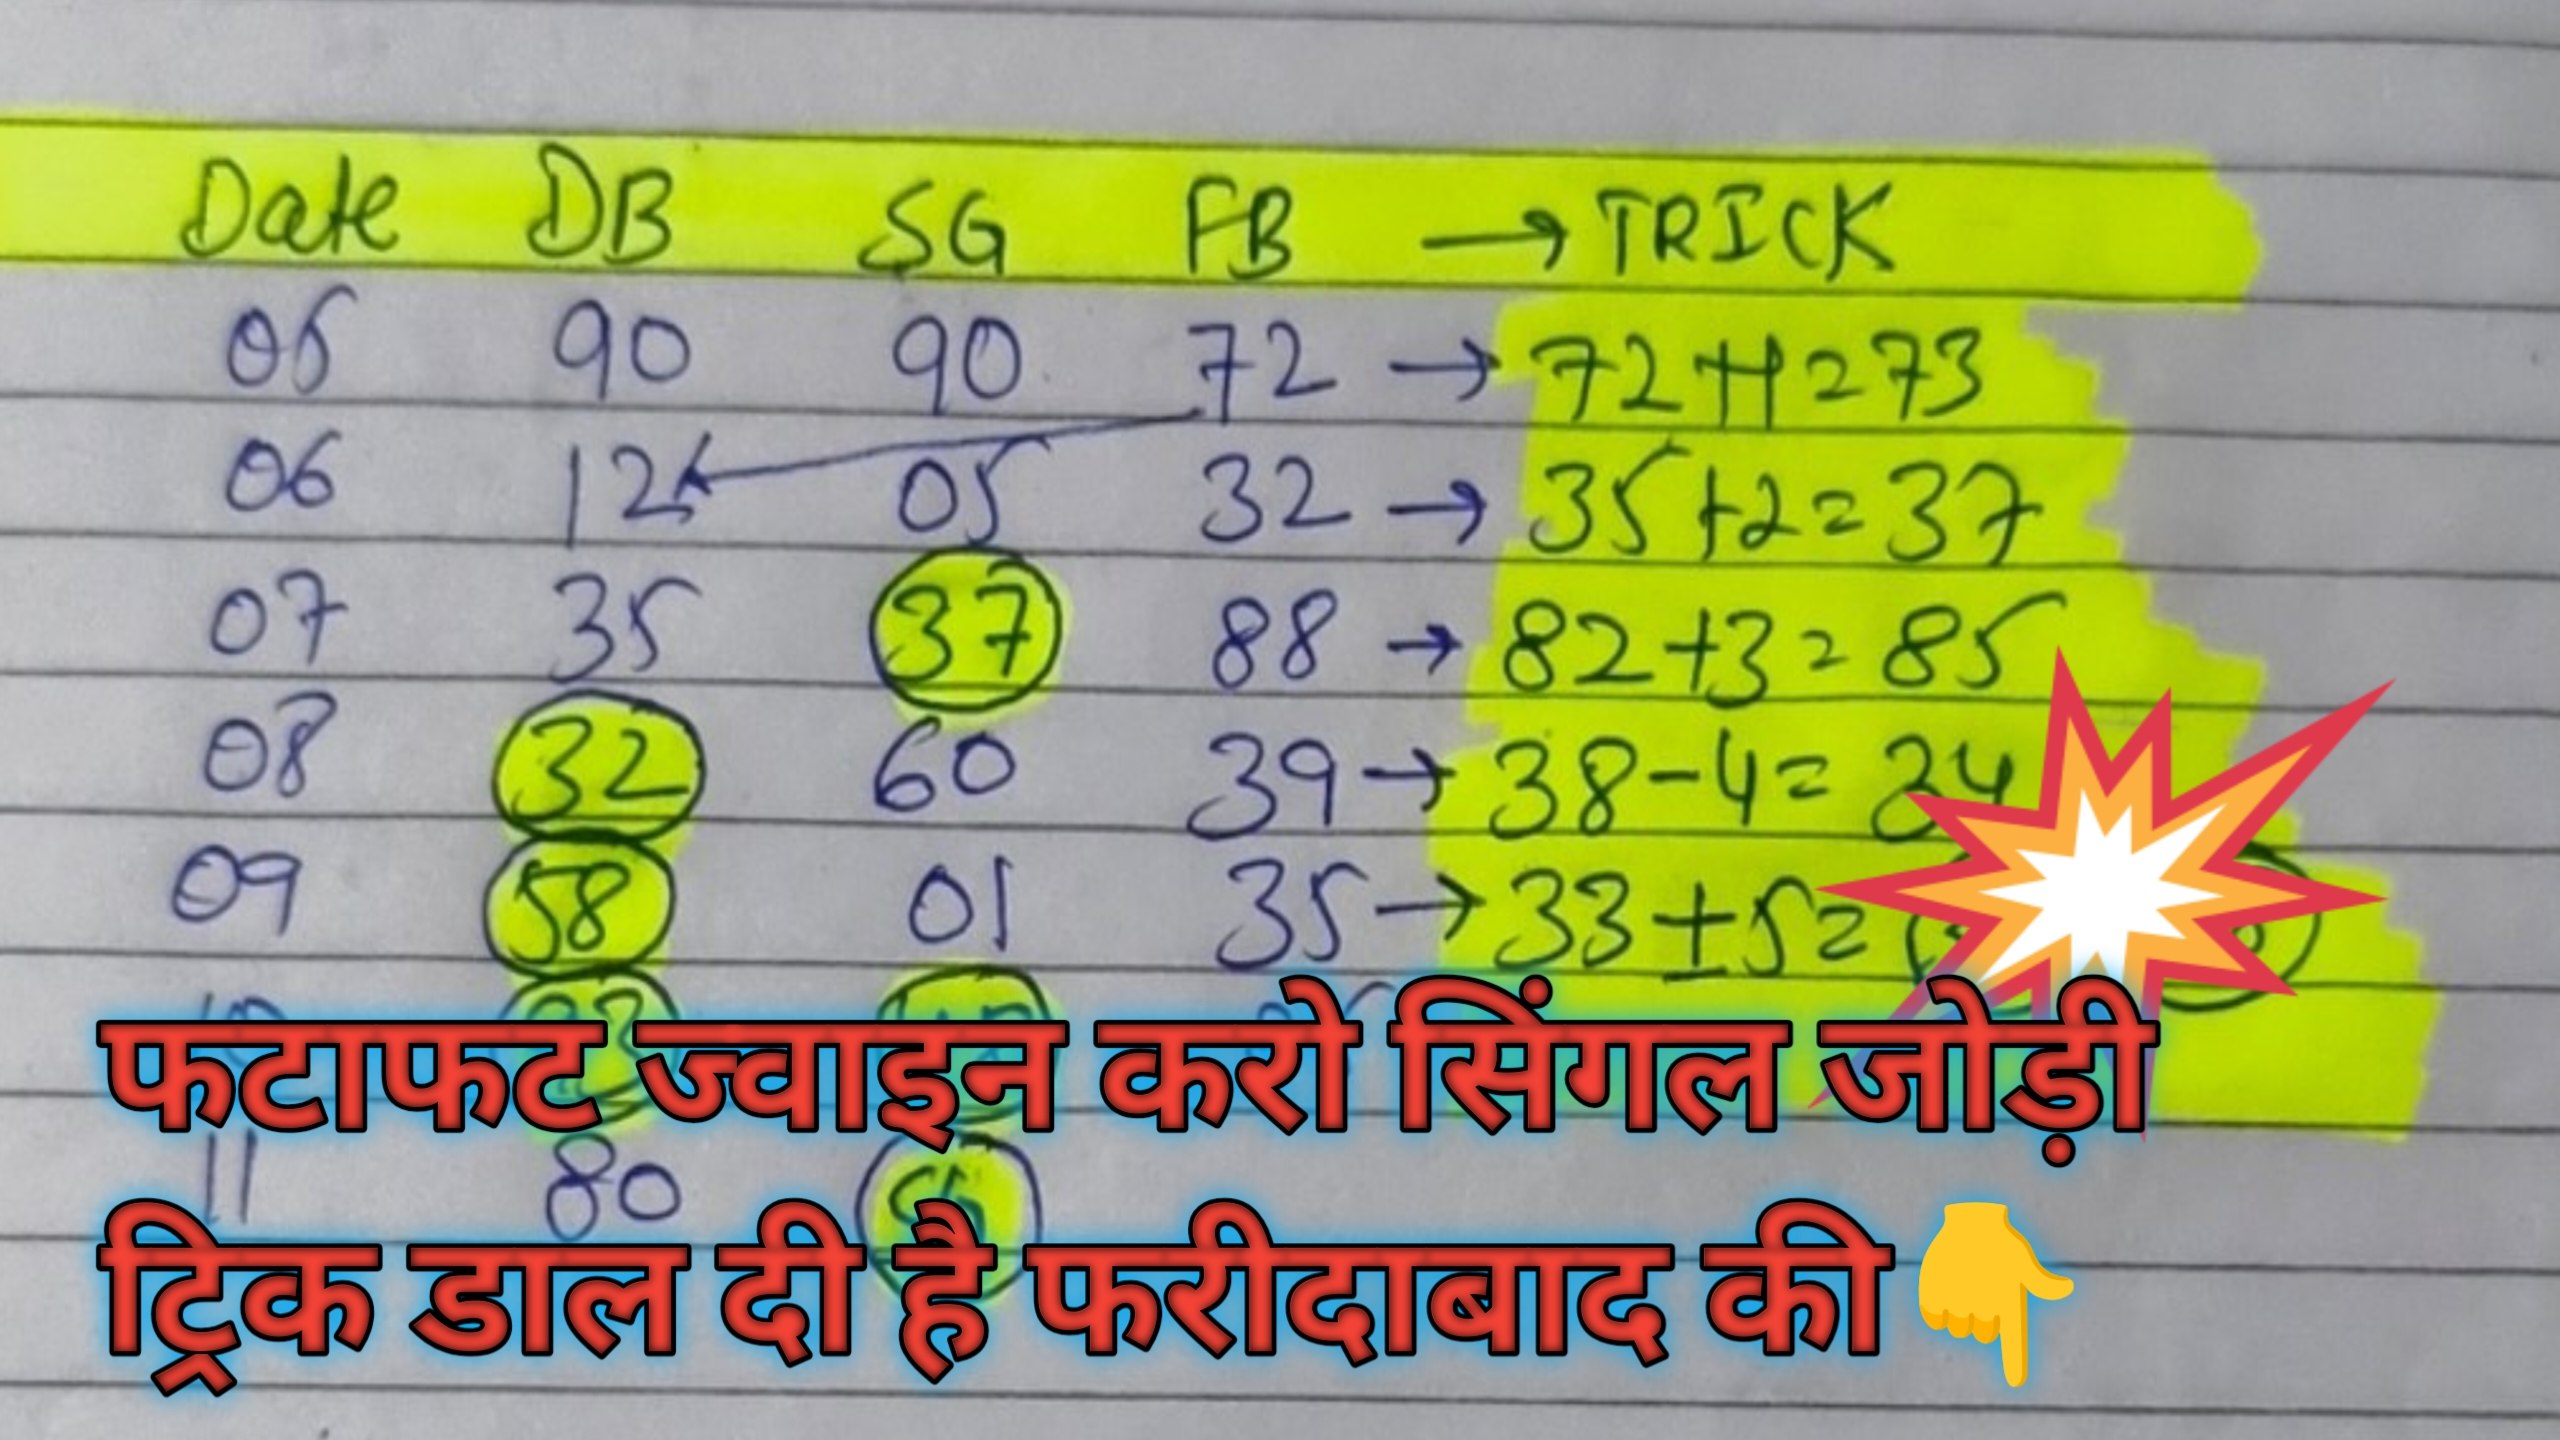 Date DB SG FB → TRICK
05 90 90 72 → 72+1=73
06 12 05 32 → 35+2=37
07 35 37 88 → 82+3=85
08 32 60 39 → 38-4=34
09 58 01 35 → 33±5=
फटाफट ज्वाइन करो सिंगल जोड़ी
11 80
ट्रिक डाल दी है फरीदाबाद की👇